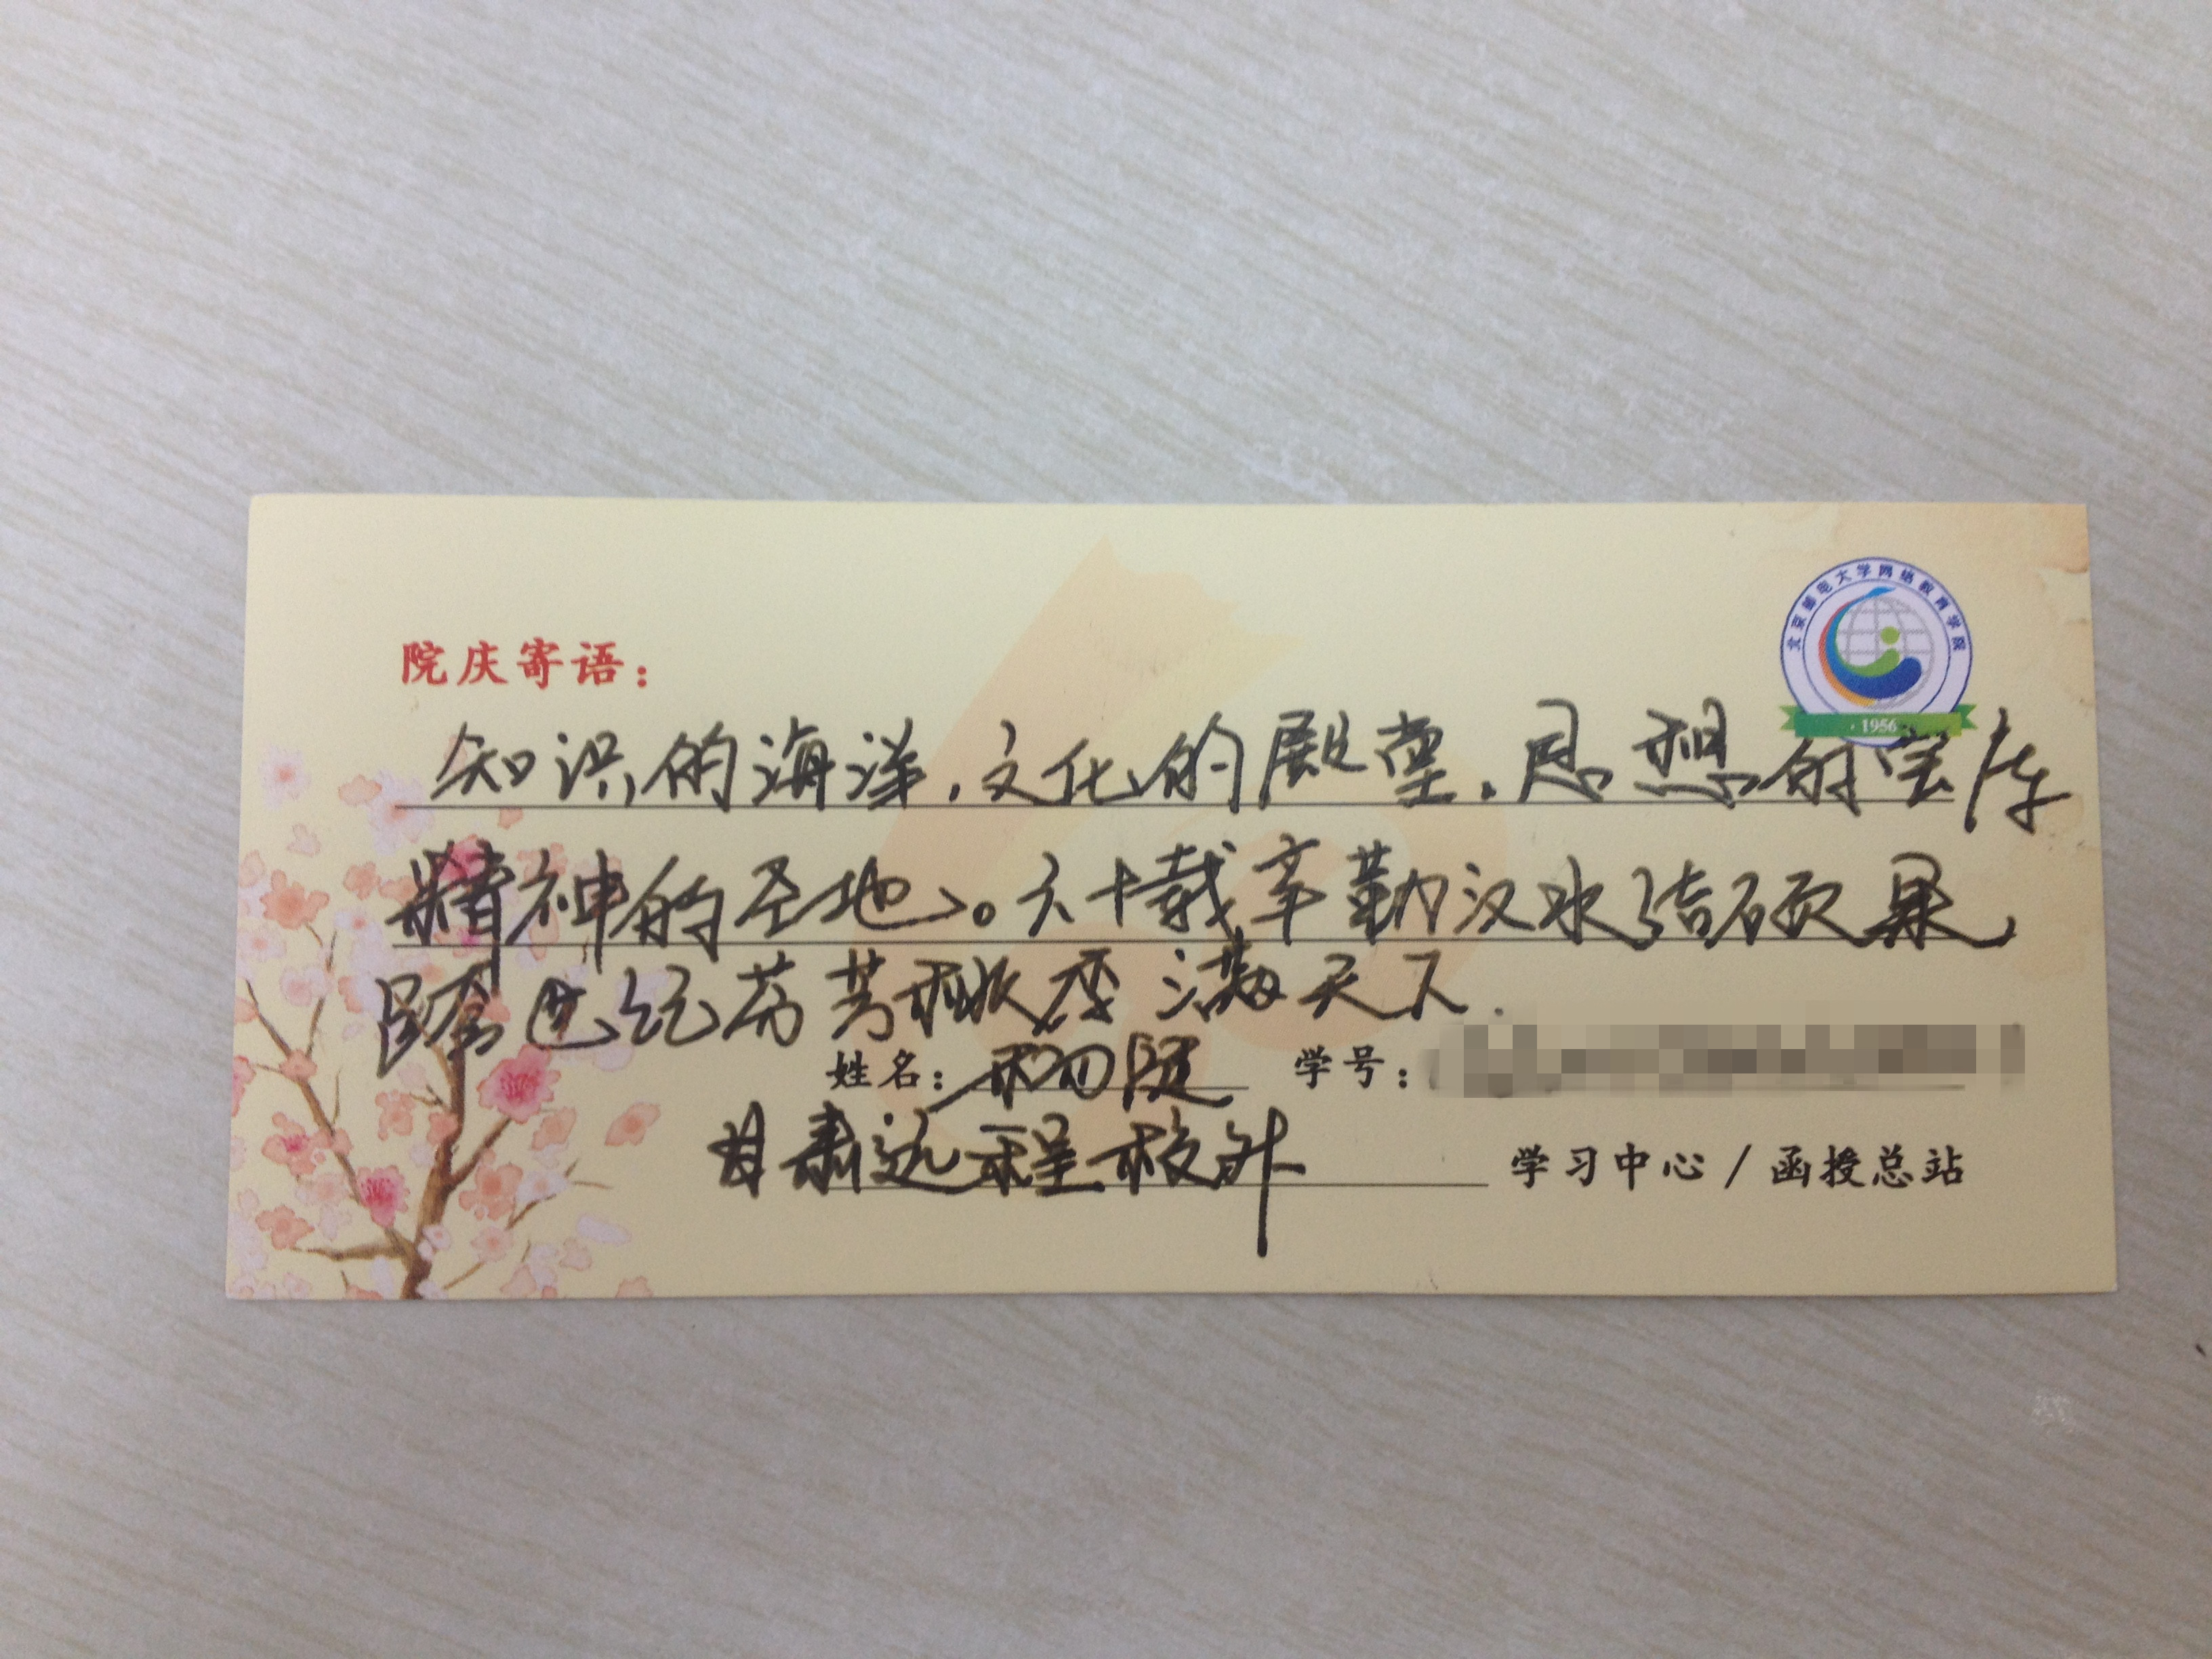 北京邮电大学网络教育学院
· 1956
院庆寄语：
知识的海洋，文化的殿堂，思想的宝库
精神的圣地。六十载辛勤汉水结硕果
跨世纪芬芳桃李满天下.
姓名： 学号：
甘肃远程校外 学习中心 / 函授总站